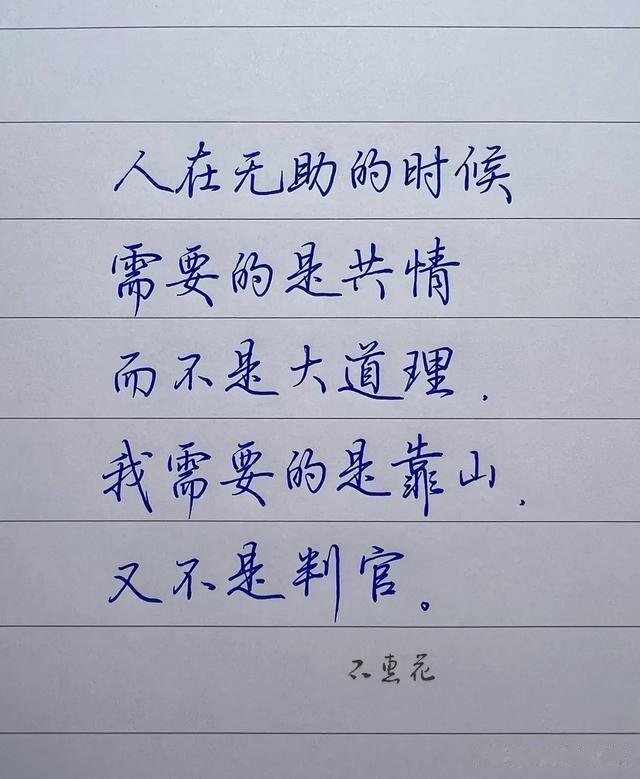 人在无助的时候
需要的是共情
而不是大道理.
我需要的是靠山.
又不是判官。